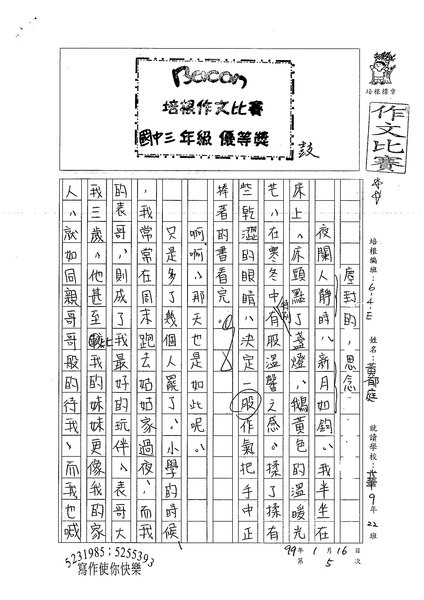 Bacon
培根作文比賽
國中三年級 優等獎
培根標章
作文比賽
培根編班：614E 姓名：黃郁庭 就讀學校：華 9年22班
99年1月16日
第5次
塵封的，思念
夜闌人靜時，新月如鉤，我半坐在
床上，床頭點了盞燈，鵝黃色的溫暖光
芒，在寒冬中有股溫馨之感。揉了揉有
些乾澀的眼睛，決定一股作氣把手中正
捧着的書看完。
啊啊，那天也是如此呢。
只是多了幾個人罷了。小學的時候
，我常常在周末跑去姑姑家過夜，而我
的表哥，則成了我最好的玩伴，表哥大
我三歲，他甚至比我的妹妹更像我的家
人，就如同親哥哥般的待我，而我也喊
5231985；5255393
寫作使你快樂